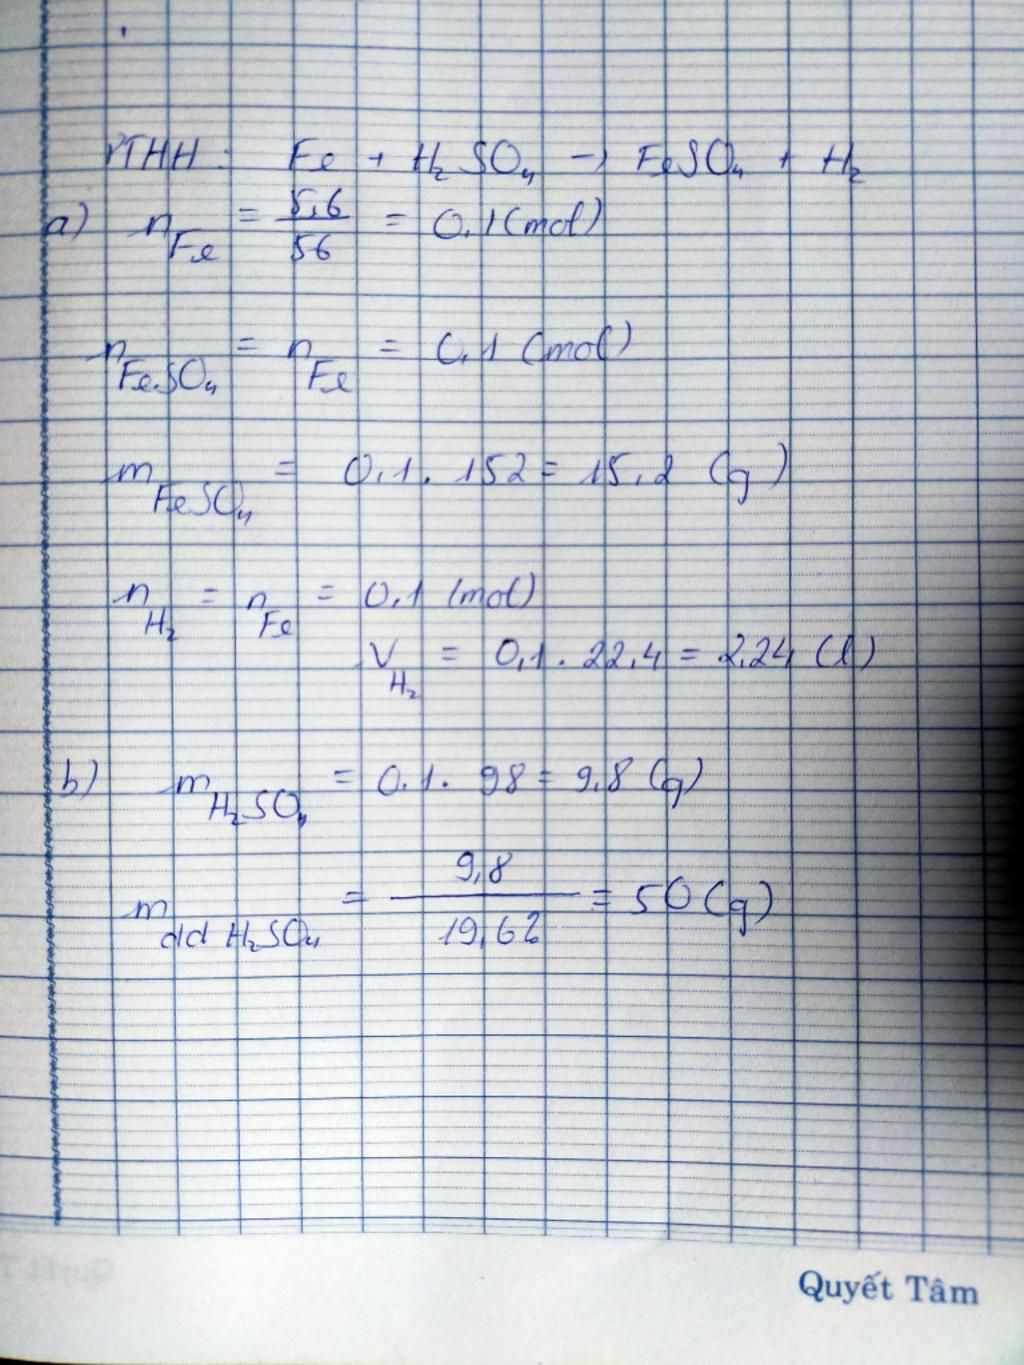 PTHH: Fe + H₂SO₄ → FeSO₄ + H₂
a) n_Fe = 5,6/56 = 0,1 (mol)
n_FeSO₄ = n_Fe = 0,1 (mol)
m_FeSO₄ = 0,1 . 152 = 15,2 (g)
n_H₂ = n_Fe = 0,1 (mol)
V_H₂ = 0,1 . 22,4 = 2,24 (l)
b) m_H₂SO₄ = 0.1. 98 = 9,8 (g)
m_dd H₂SO₄ = 9,8/19,62 = 50 (g)
Quyết Tâm